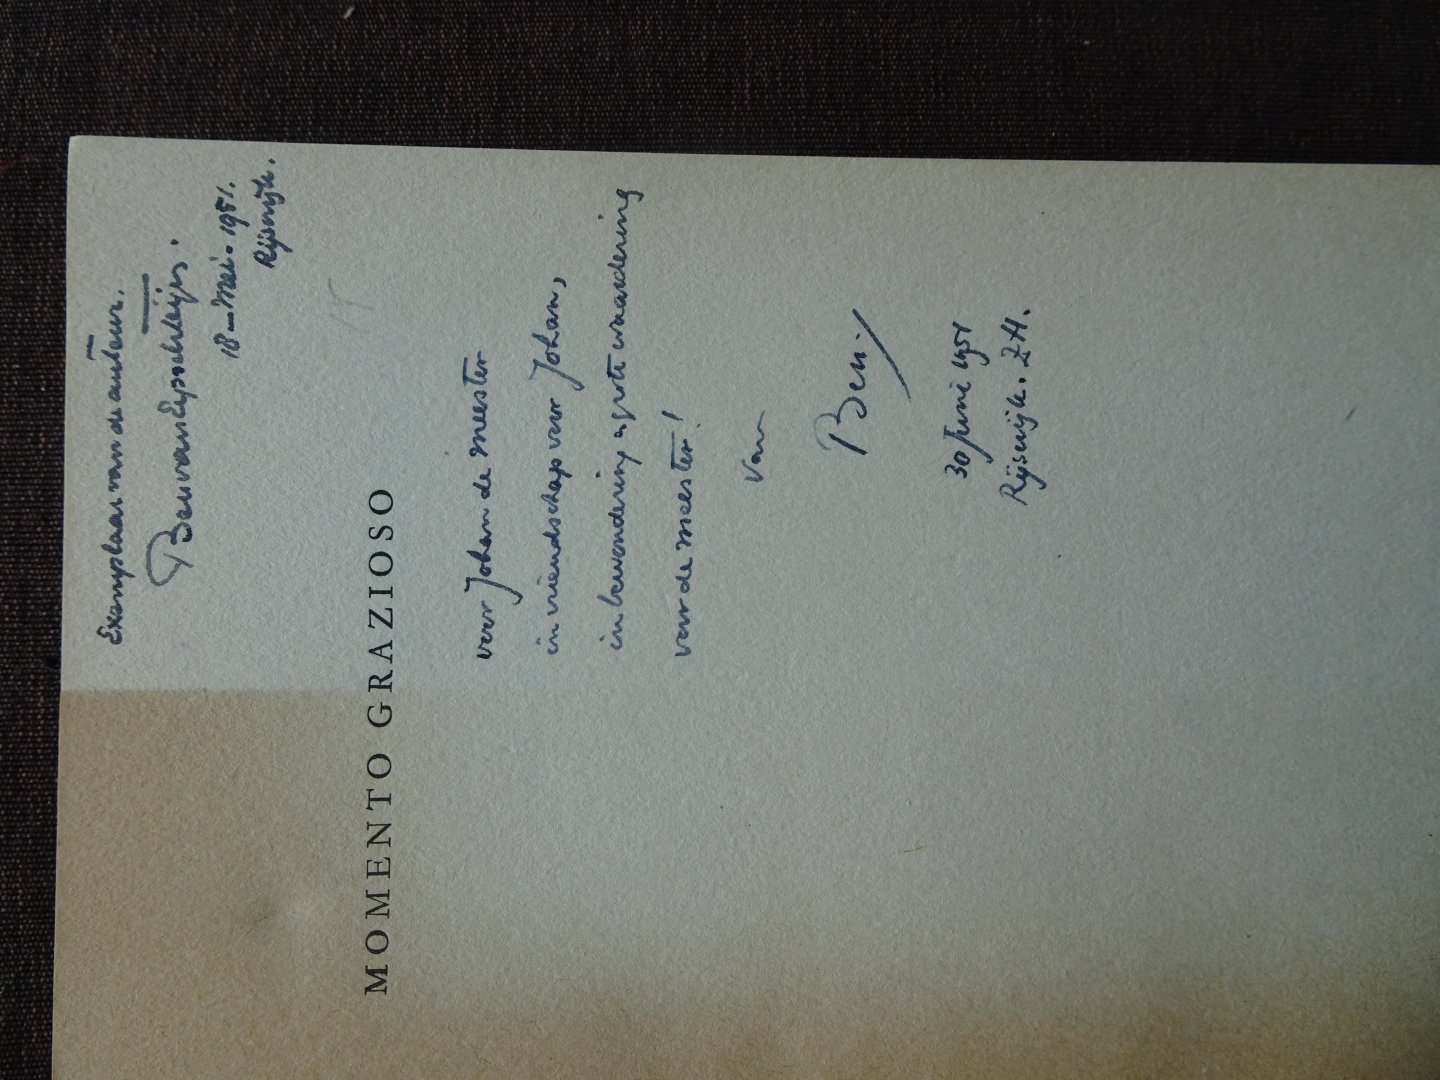 Exemplaar van de auteur.
Ben van Eysselsteijn.
18 – Mei. 1951.
Rijswijk.
15
MOMENTO GRAZIOSO
voor Johan de Meester
in vriendschap voor Johan,
in bewondering & grote waardering
voor de Meester!
van
Ben.
30 Juni 1951
Rijswijk. Z.H.